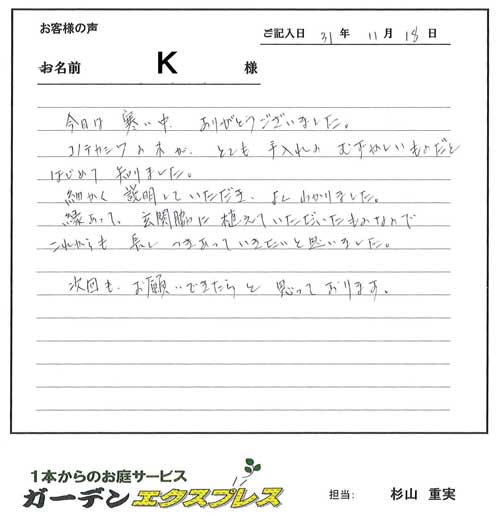 お客様の声
ご記入日 31 年 11 月 18 日
お名前 K 様
今日は 寒い中、ありがとうございました。
コノテカシワの木が、とても 手入れの むずかしいものだと
はじめて 知りました。
細かく 説明していただき、よくわかりました。
縁あって、玄関脇に 植えていただいたものなので
これからも 長く つきあっていきたいと思いました。
次回も、お願いできたらと 思っております。
1本からのお庭サービス
ガーデンエクスプレス
担当: 杉山 重実